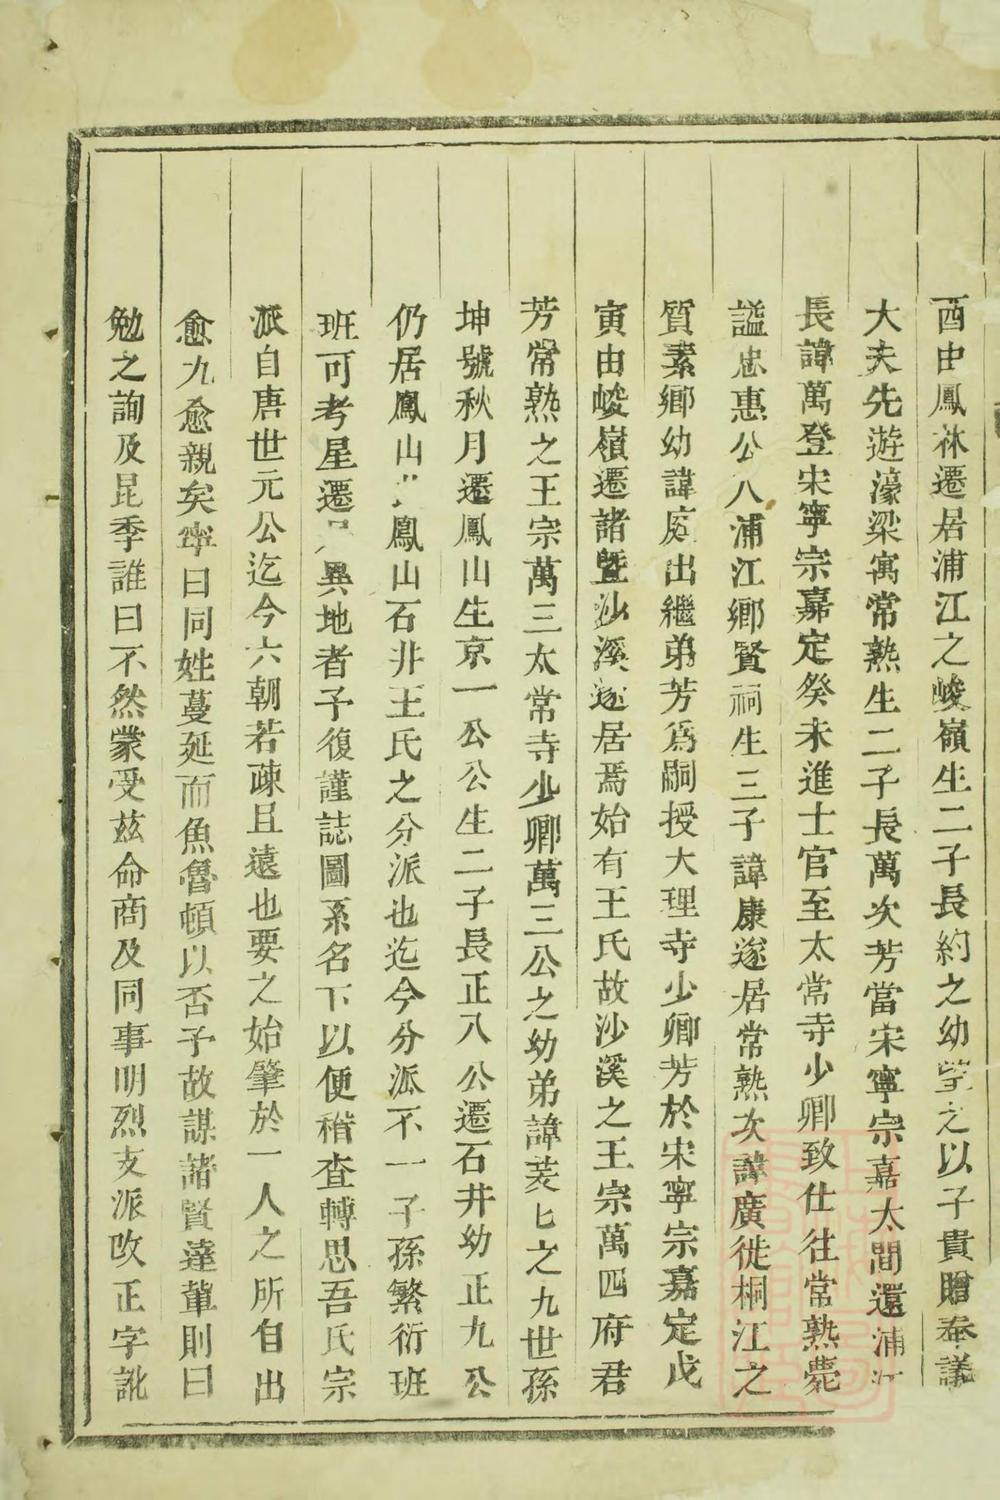 酉由鳳林遷居浦江之峻嶺生二子長約之幼瑩之以子貴贈奉議
大夫先遊濠梁寓常熟生二子長萬次芳當宋寧宗嘉太間還浦江
長諱萬登宋寧宗嘉定癸未進士官至太常寺少卿致仕往常熟薨
謚忠惠公八浦江鄉賢祠生三子諱康遂居常熟次諱廣徙桐江之
質素鄉幼諱庭出繼弟芳爲嗣授大理寺少卿芳於宋寧宗嘉定戊
寅由峻嶺遷諸暨沙溪遂居焉始有王氏故沙溪之王宗萬四府君
芳常熟之王宗萬三太常寺少卿萬三公之幼弟諱芠匕之九世孫
坤號秋月遷鳳山生京一公公生二子長正八公遷石井幼正九公
仍居鳳山鳳山石井王氏之分派也迄今分派不一子孫繁衍班
班可考星遷異地者予復謹誌圖系名下以便稽查轉思吾氏宗
派自唐世元公迄今六朝若疎且遠也要之始肇於一人之所自出
愈九愈親矣寧曰同姓蔓延而魚魯頓以否予故謀諸賢達輩則曰
勉之詢及昆季誰曰不然蒙受茲命商及同事明烈支派改正字訛